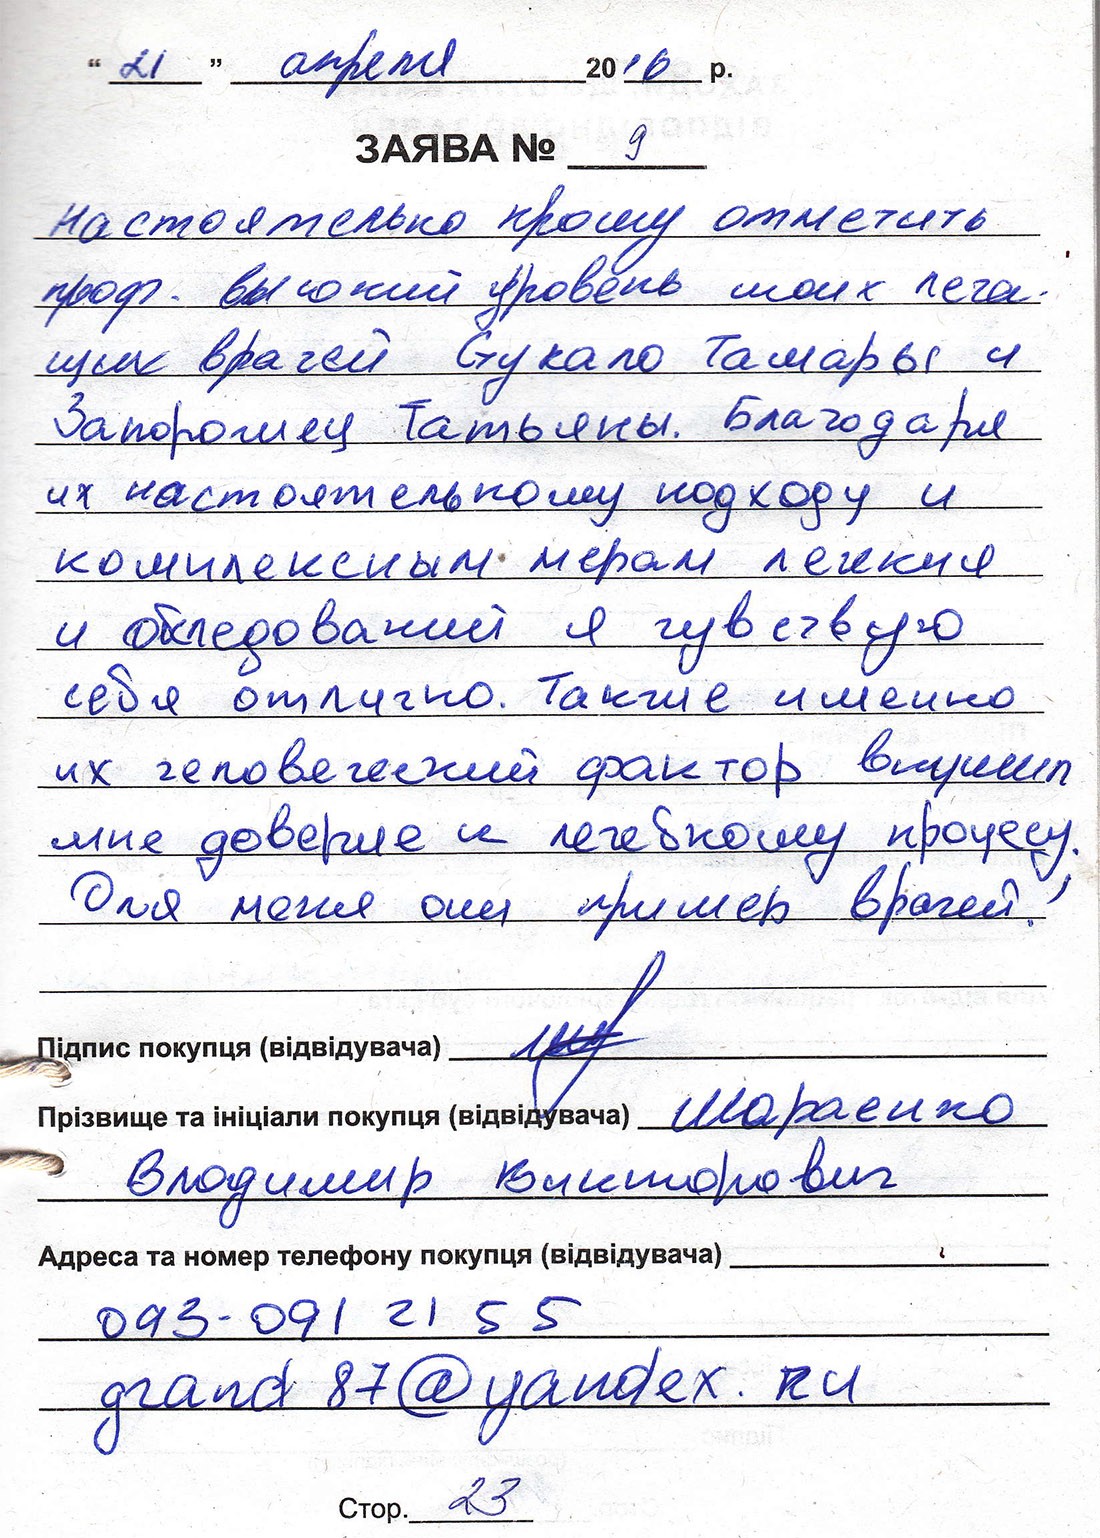 “ 21 ” апреля 2016 р.
ЗАЯВА № 9
Настоятельно прошу отметить
проф. высокий уровень моих леча-
щих врачей Сукало Тамары и
Запорожец Татьяны. Благодаря
их настоятельному подходу и
комплексным мерам лечения
и обследований я чувствую
себя отлично. Также именно
их человеческий фактор внушил
мне доверие к лечебному процесу.
Для меня они пример врачей!
Підпис покупця (відвідувача)
Прізвище та ініціали покупця (відвідувача)
Владимир Викторович
Адреса та номер телефону покупця (відвідувача)
093-091 21 55
grand 87@yandex.ru
Стор. 23